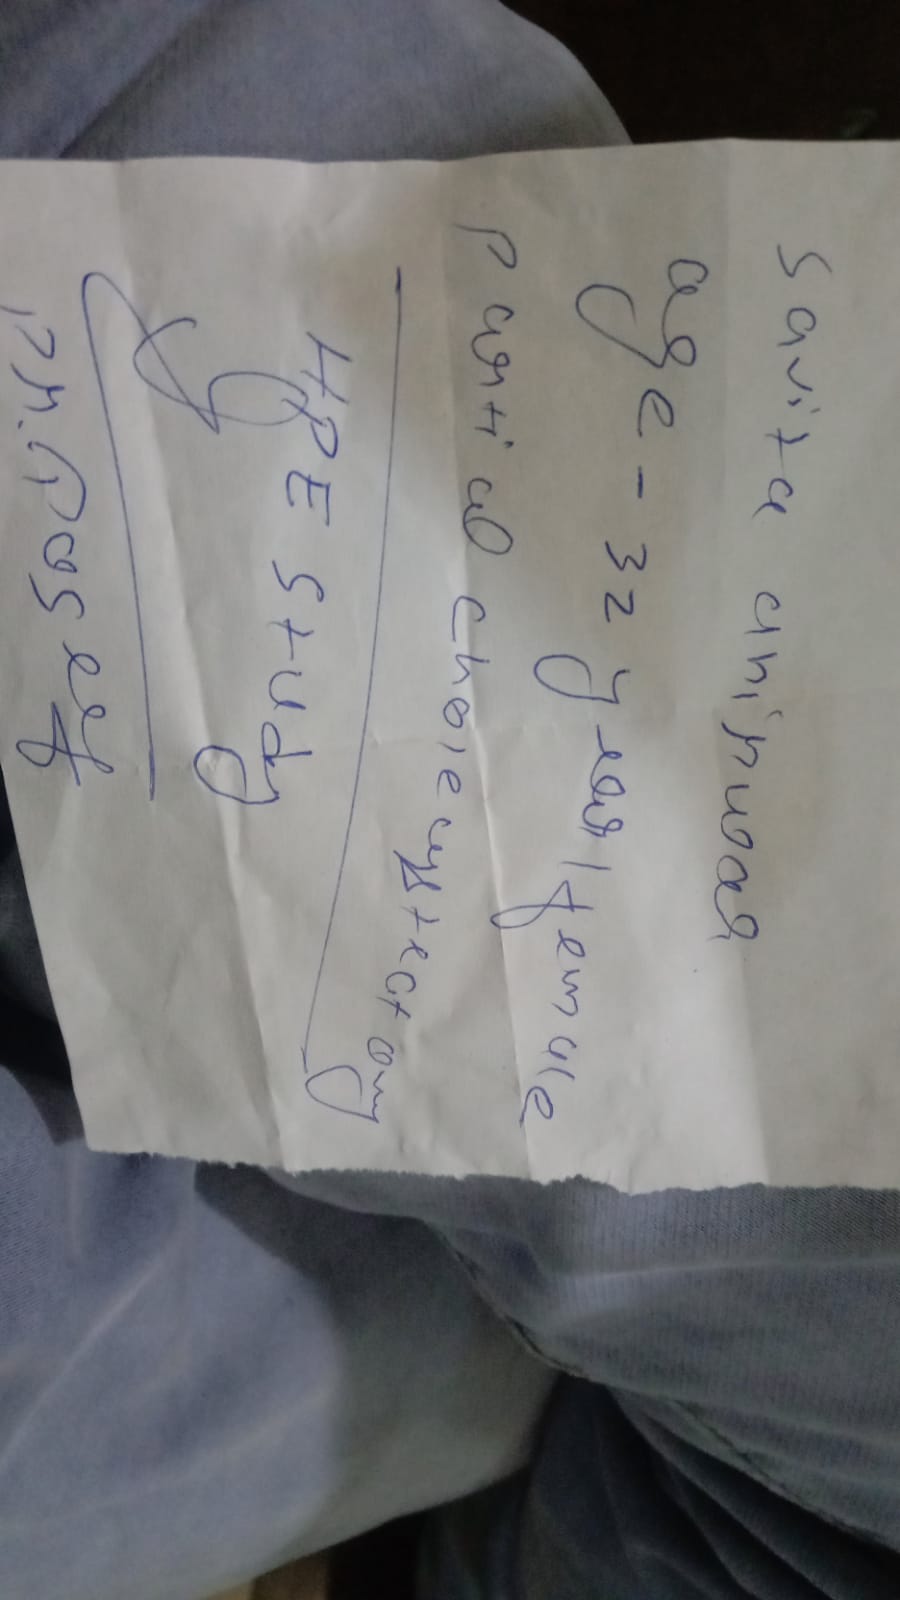 Savita ahirwar
age - 32 year / female
Partial cholecystectomy
HPE Study